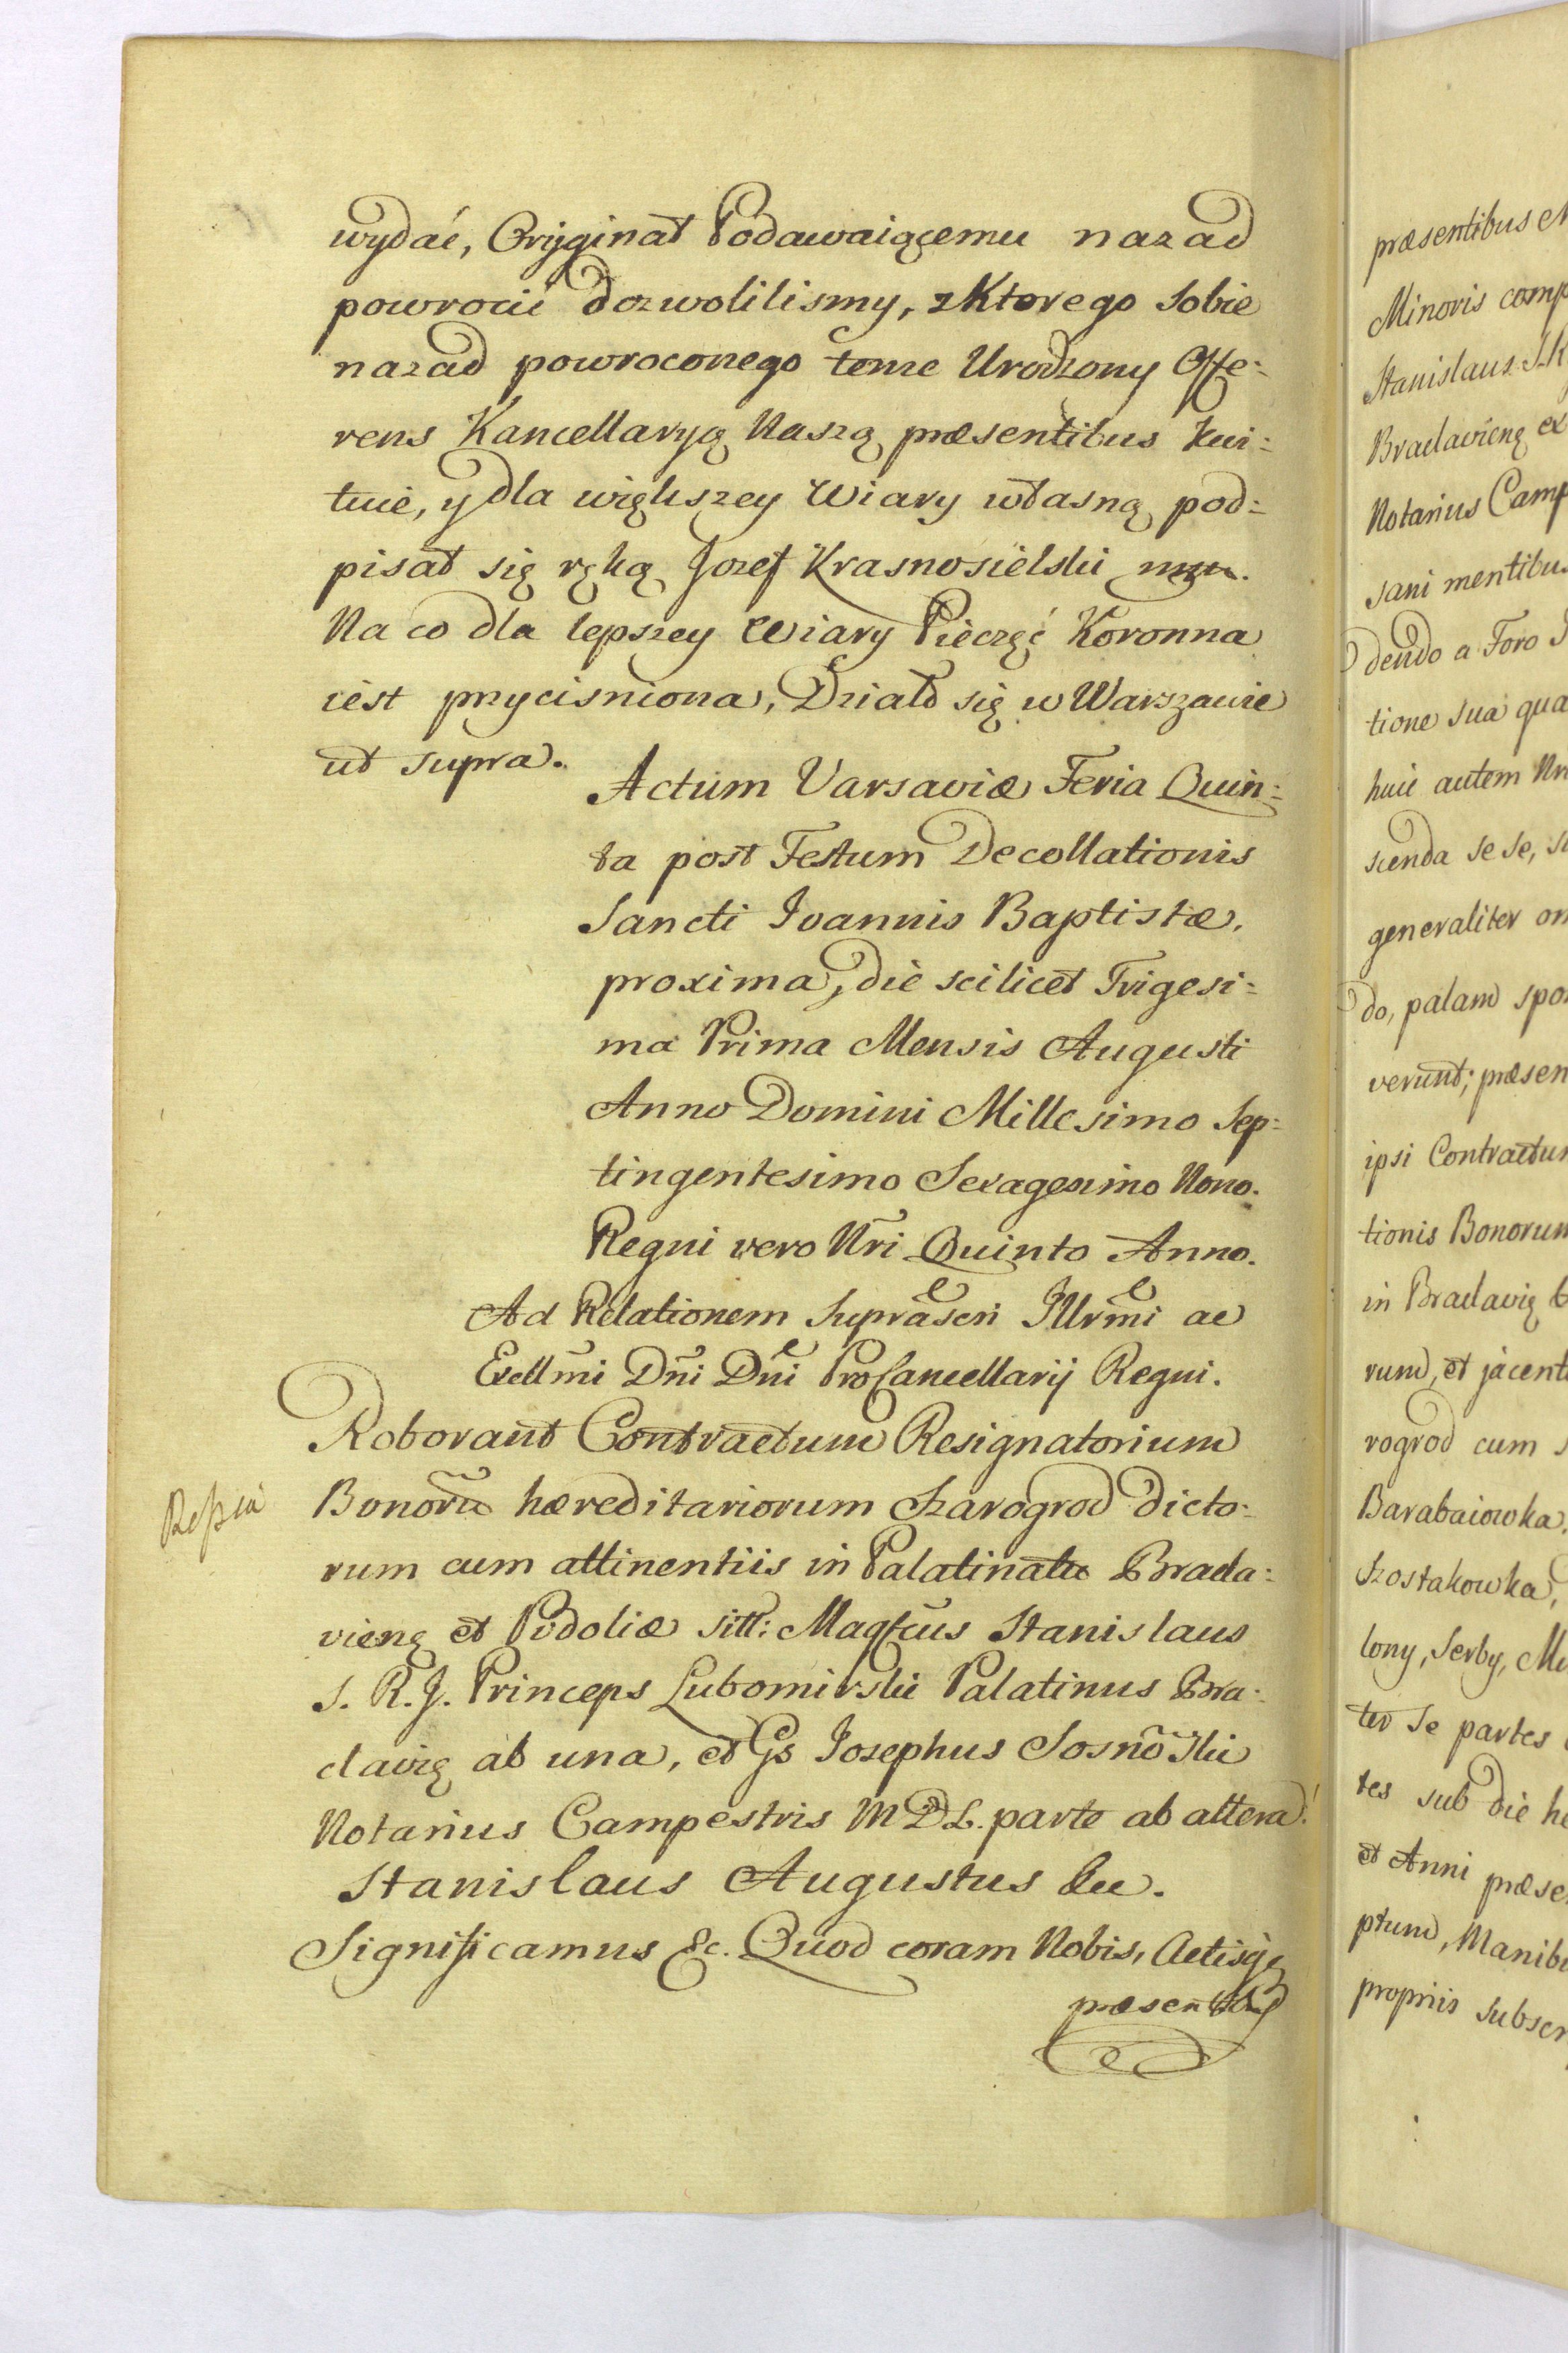 wydać, Oryginał Podawaiącemu nazad
powrocić dozwolilismy, z Ktorego sobie
nazad powroconego tenze Urodzony Offe:
rens Kancellaryą Naszą præsentibus kwi:
tuie, y dla większey Wiary własną pod:
pisał się ręką Jozef Krasnosielski mp.
Na co dla lepszey Wiary Pieczęć Koronna
iest przycisniona, Działo się w Warszawie
ut supra.
Actum Varsaviæ Feria Quin:
ta post Festum Decollationis
Sancti Joannis Baptistæ,
proxima, die scilicet Trigesi:
ma Prima Mensis Augusti
Anno Domini Millesimo Sep:
tingentesimo Sexagesimo Nono.
Regni vero Nri Quinto Anno.
Ad Relationem Suprascri Illrmi ac
Excllmi Dni Dni ProCancellarij Regni.
Roborant Contractum Resignatorium
Bonorũ hæreditariorum Szarogrod dicto:
rum cum attinentiis in Palatinatu Bracla:
vieng et Podoliæ sitt: Magfcus Stanislaus
S. R. J. Princeps Lubomirski Palatinus Bra:
clavię ab una, et Gs Josephus Sosnõski
Notarius Campestris M D L. parte ab altera.
Stanislaus Augustus &c.
Significamus &c. Quod coram Nobis, Actisqę
præsentibus
præsentibus
Minoris
Stanislaus
Bracłavieng ex
Notarius Camp
sani mentibus
dendo a Foro
tione sua qua
huic autem
scenda se se,
generaliter
do, palam
verunt; præsen
ipsi Contractum
tionis Bonorum
in Braclavię
rum, et jacent
rogrod cum
Barabaiowka,
Szostakowka,
lony, Serby,
ter se partes
tes sub die
et Anni præse
ptum, Manib
propriis subscr